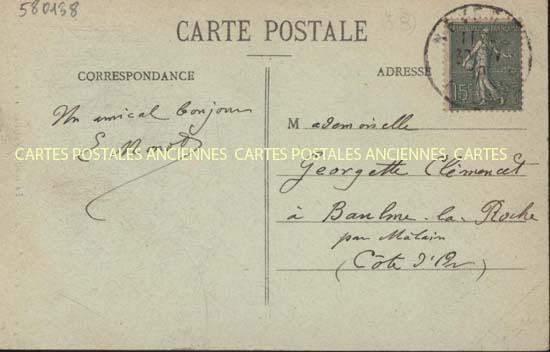 580138
CARTE POSTALE
CORRESPONDANCE
ADRESSE
15
Un amical bonjour
Mademoiselle
CARTES POSTALES ANCIENNES CARTES POSTALES ANCIENNES CARTES
Georgette Clémencet
à Baulme-la-Roche
par Mâlain
(Côte d'Or)